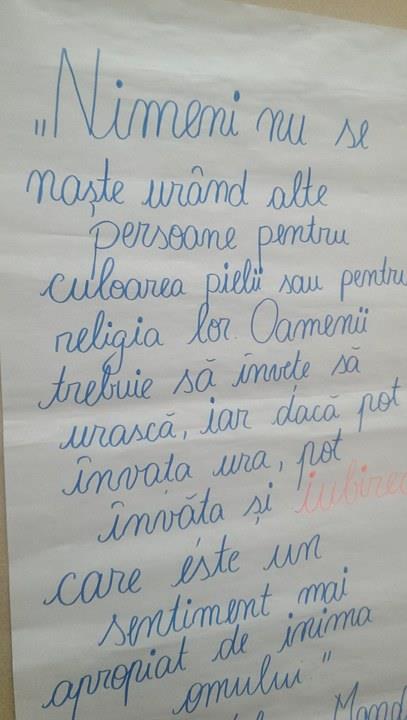 „Nimeni nu se
naște urând alte
persoane pentru
culoarea pielii sau pentru
religia lor. Oamenii
trebuie să învețe să
urască, iar dacă pot
învata ura, pot
învăta și iubirea
care este un
sentiment mai
apropiat de inima
omului."
Mand